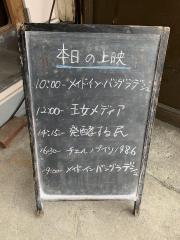 本日の上映
10:00- メイド・イン・バングラデシュ
12:00- 王女メディア
14:15- 発酵する民
16:30- チェルノブイリ1986
19:00- メイド・イン・バングラデシュ